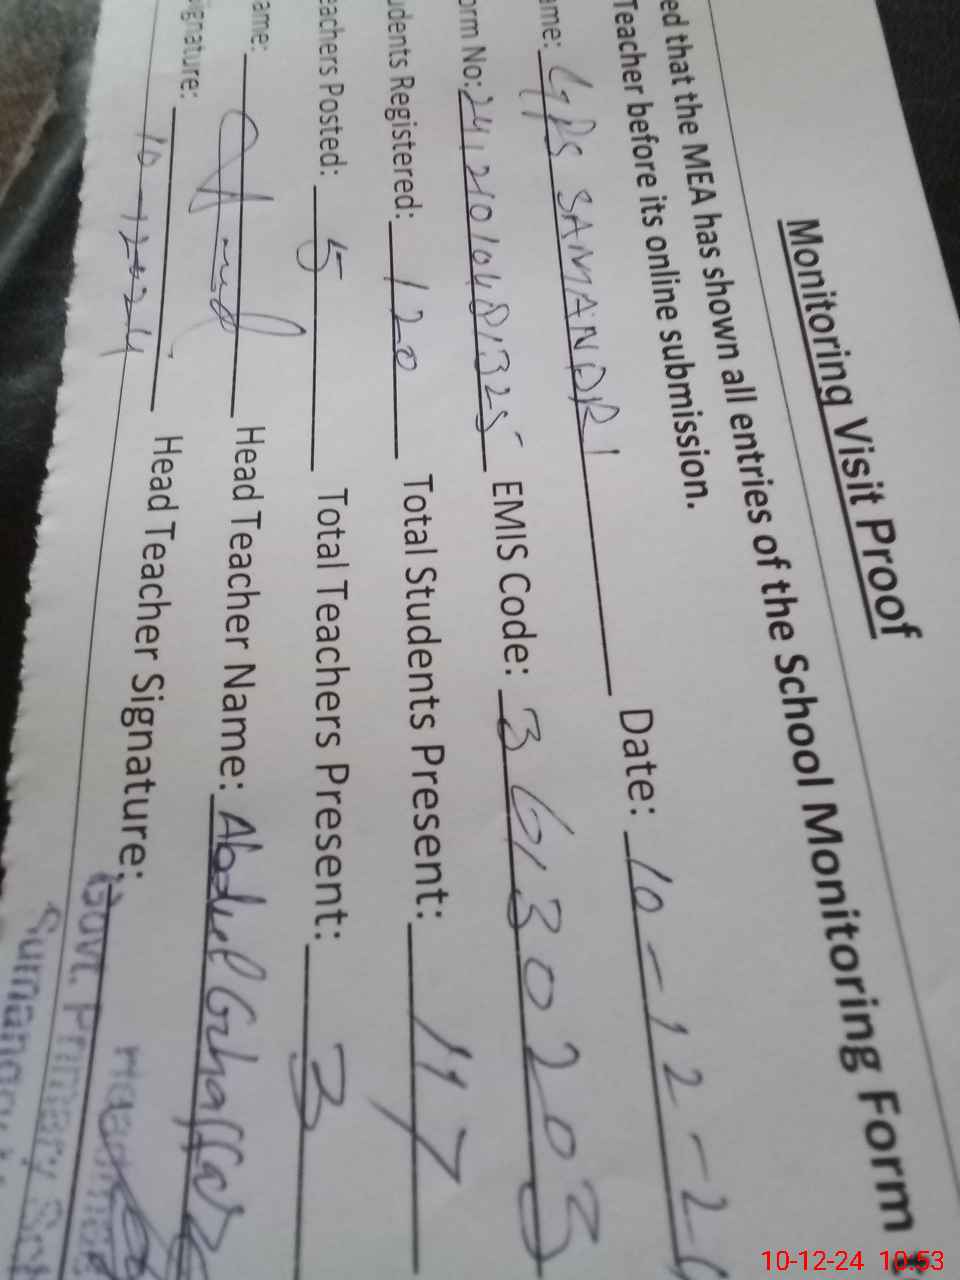 Monitoring Visit Proof
ed that the MEA has shown all entries of the School Monitoring Form
Teacher before its online submission.
ame: GPS SAMANDRI Date: 10-12-2
orm No: EMIS Code: 36130203
udents Registered: 120 Total Students Present: 117
eachers Posted: 5 Total Teachers Present: 3
ame: Head Teacher Name: Abdul
ignature: Head Teacher Signature:
10-12-24
Govt. Primary Sch
10-12-24 10:53